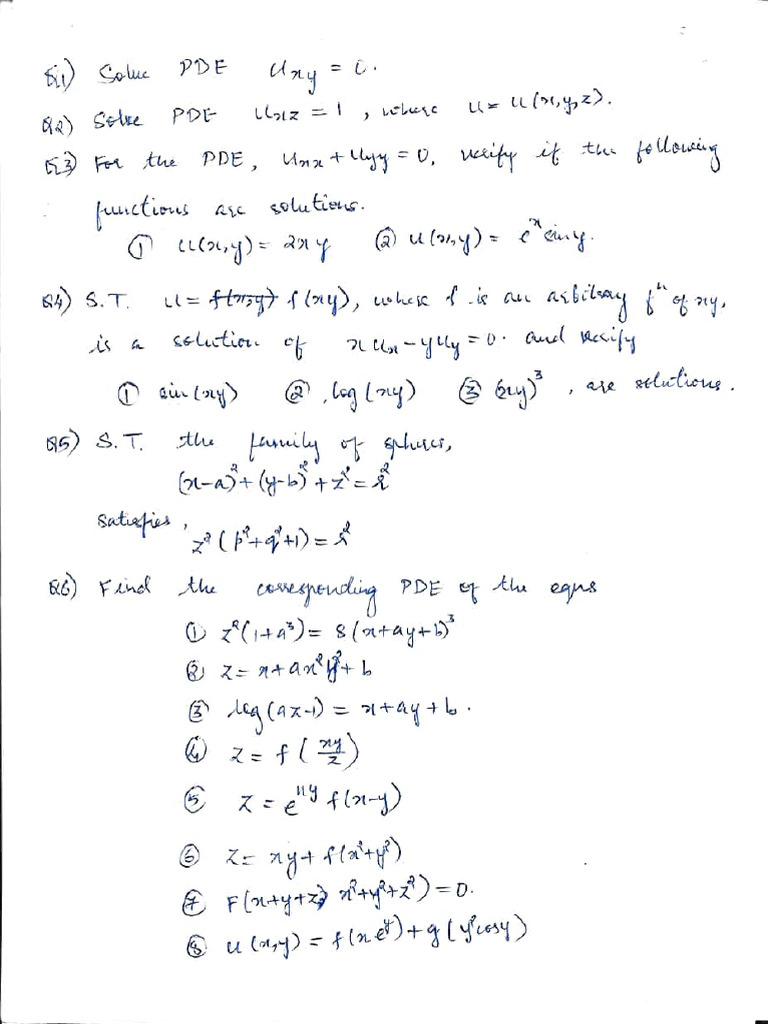 Q1) Solve PDE u_xy = 0.
Q2) Solve PDE u_xz = 1, where u = u(x,y,z).
Q3) For the PDE, u_xx + u_yy = 0, verify if the following
functions are solutions.
① u(x,y) = 2xy ② u(x,y) = e^x siny.
Q4) S.T. u = f(x,y) f(xy), where f is an arbitrary fⁿ of xy,
is a solution of x u_x - y u_y = 0. and verify
① sin(xy) ② log(xy) ③ (xy)³, are solutions.
Q5) S.T. the family of spheres,
(x-a)² + (y-b)² + z² = r²
satisfies, z²(p²+q²+1) = r²
Q6) Find the corresponding PDE of the eqns
① z²(1+a³) = 8(x+ay+b)³
② z = x + ax²y² + b
③ log(az-1) = x+ay+b.
④ z = f(xy/z)
⑤ z = e^ny f(x-y)
⑥ z = xy + f(x²+y²)
⑦ F(x+y+z, x²+y²+z²) = 0.
⑧ u(x,y) = f(x e^y) + g(y² cosy)